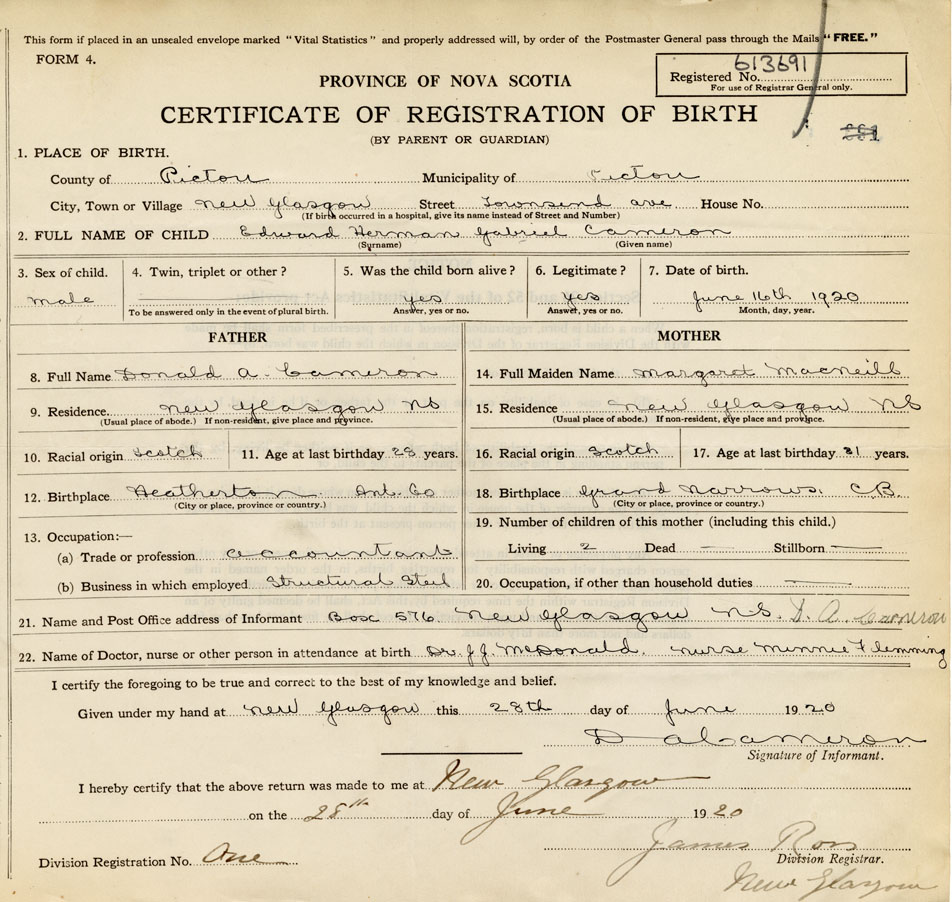 This form if placed in an unsealed envelope marked "Vital Statistics" and properly addressed will, by order of the Postmaster General pass through the Mails "FREE."
FORM 4.
613691
Registered No.
For use of Registrar General only.
PROVINCE OF NOVA SCOTIA
CERTIFICATE OF REGISTRATION OF BIRTH
(BY PARENT OR GUARDIAN)
1. PLACE OF BIRTH.
County of Pictou Municipality of Pictou
City, Town or Village New Glasgow Street Townsend ave House No.
(If birth occurred in a hospital, give its name instead of Street and Number)
2. FULL NAME OF CHILD Edward Herman Gabriel Cameron
(Surname) (Given name)
3. Sex of child. 4. Twin, triplet or other? 5. Was the child born alive? 6. Legitimate? 7. Date of birth.
male yes yes June 16th 1920
To be answered only in the event of plural birth. Answer, yes or no. Answer, yes or no. Month, day, year.
FATHER MOTHER
8. Full Name Donald A. Cameron 14. Full Maiden Name Margaret MacNeill
9. Residence. New Glasgow NS 15. Residence New Glasgow NS
(Usual place of abode.) If non-resident, give place and province. (Usual place of abode.) If non-resident, give place and province.
10. Racial origin Scotch 11. Age at last birthday years. 16. Racial origin Scotch 17. Age at last birthday 31 years.
12. Birthplace Heatherton Ant. Co 18. Birthplace Grand Narrows. C.B.
(City or place, province or country.) (City or place, province or country.)
13. Occupation:— 19. Number of children of this mother (including this child.)
(a) Trade or profession accountant Living 2 Dead — Stillborn —
(b) Business in which employed Structural Steel 20. Occupation, if other than household duties —
21. Name and Post Office address of Informant Box 576 New Glasgow N.S. D. A. Cameron
22. Name of Doctor, nurse or other person in attendance at birth Dr. J.J. McDonald. nurse Minnie Flemming
I certify the foregoing to be true and correct to the best of my knowledge and belief.
Given under my hand at New Glasgow this 28th day of June 1920
D A Cameron
Signature of Informant.
I hereby certify that the above return was made to me at New Glasgow
on the 28th day of June 1920
James Ross
Division Registration No. One Division Registrar.
New Glasgow